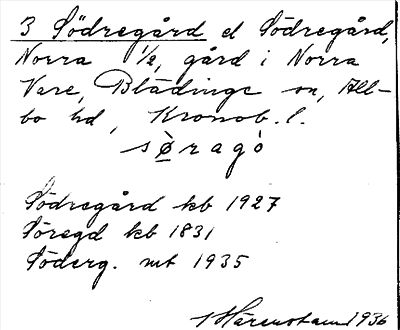 3 Södregård el Södregård,
Norra 1/2, gård i Norra
Vare, Blädinge sn, All-
bo hd, Kronob. l.
sø̀ragó
Södregård kb 1927
Söregd kb 1831
Söderg. mt 1935
Hårenstam 1936